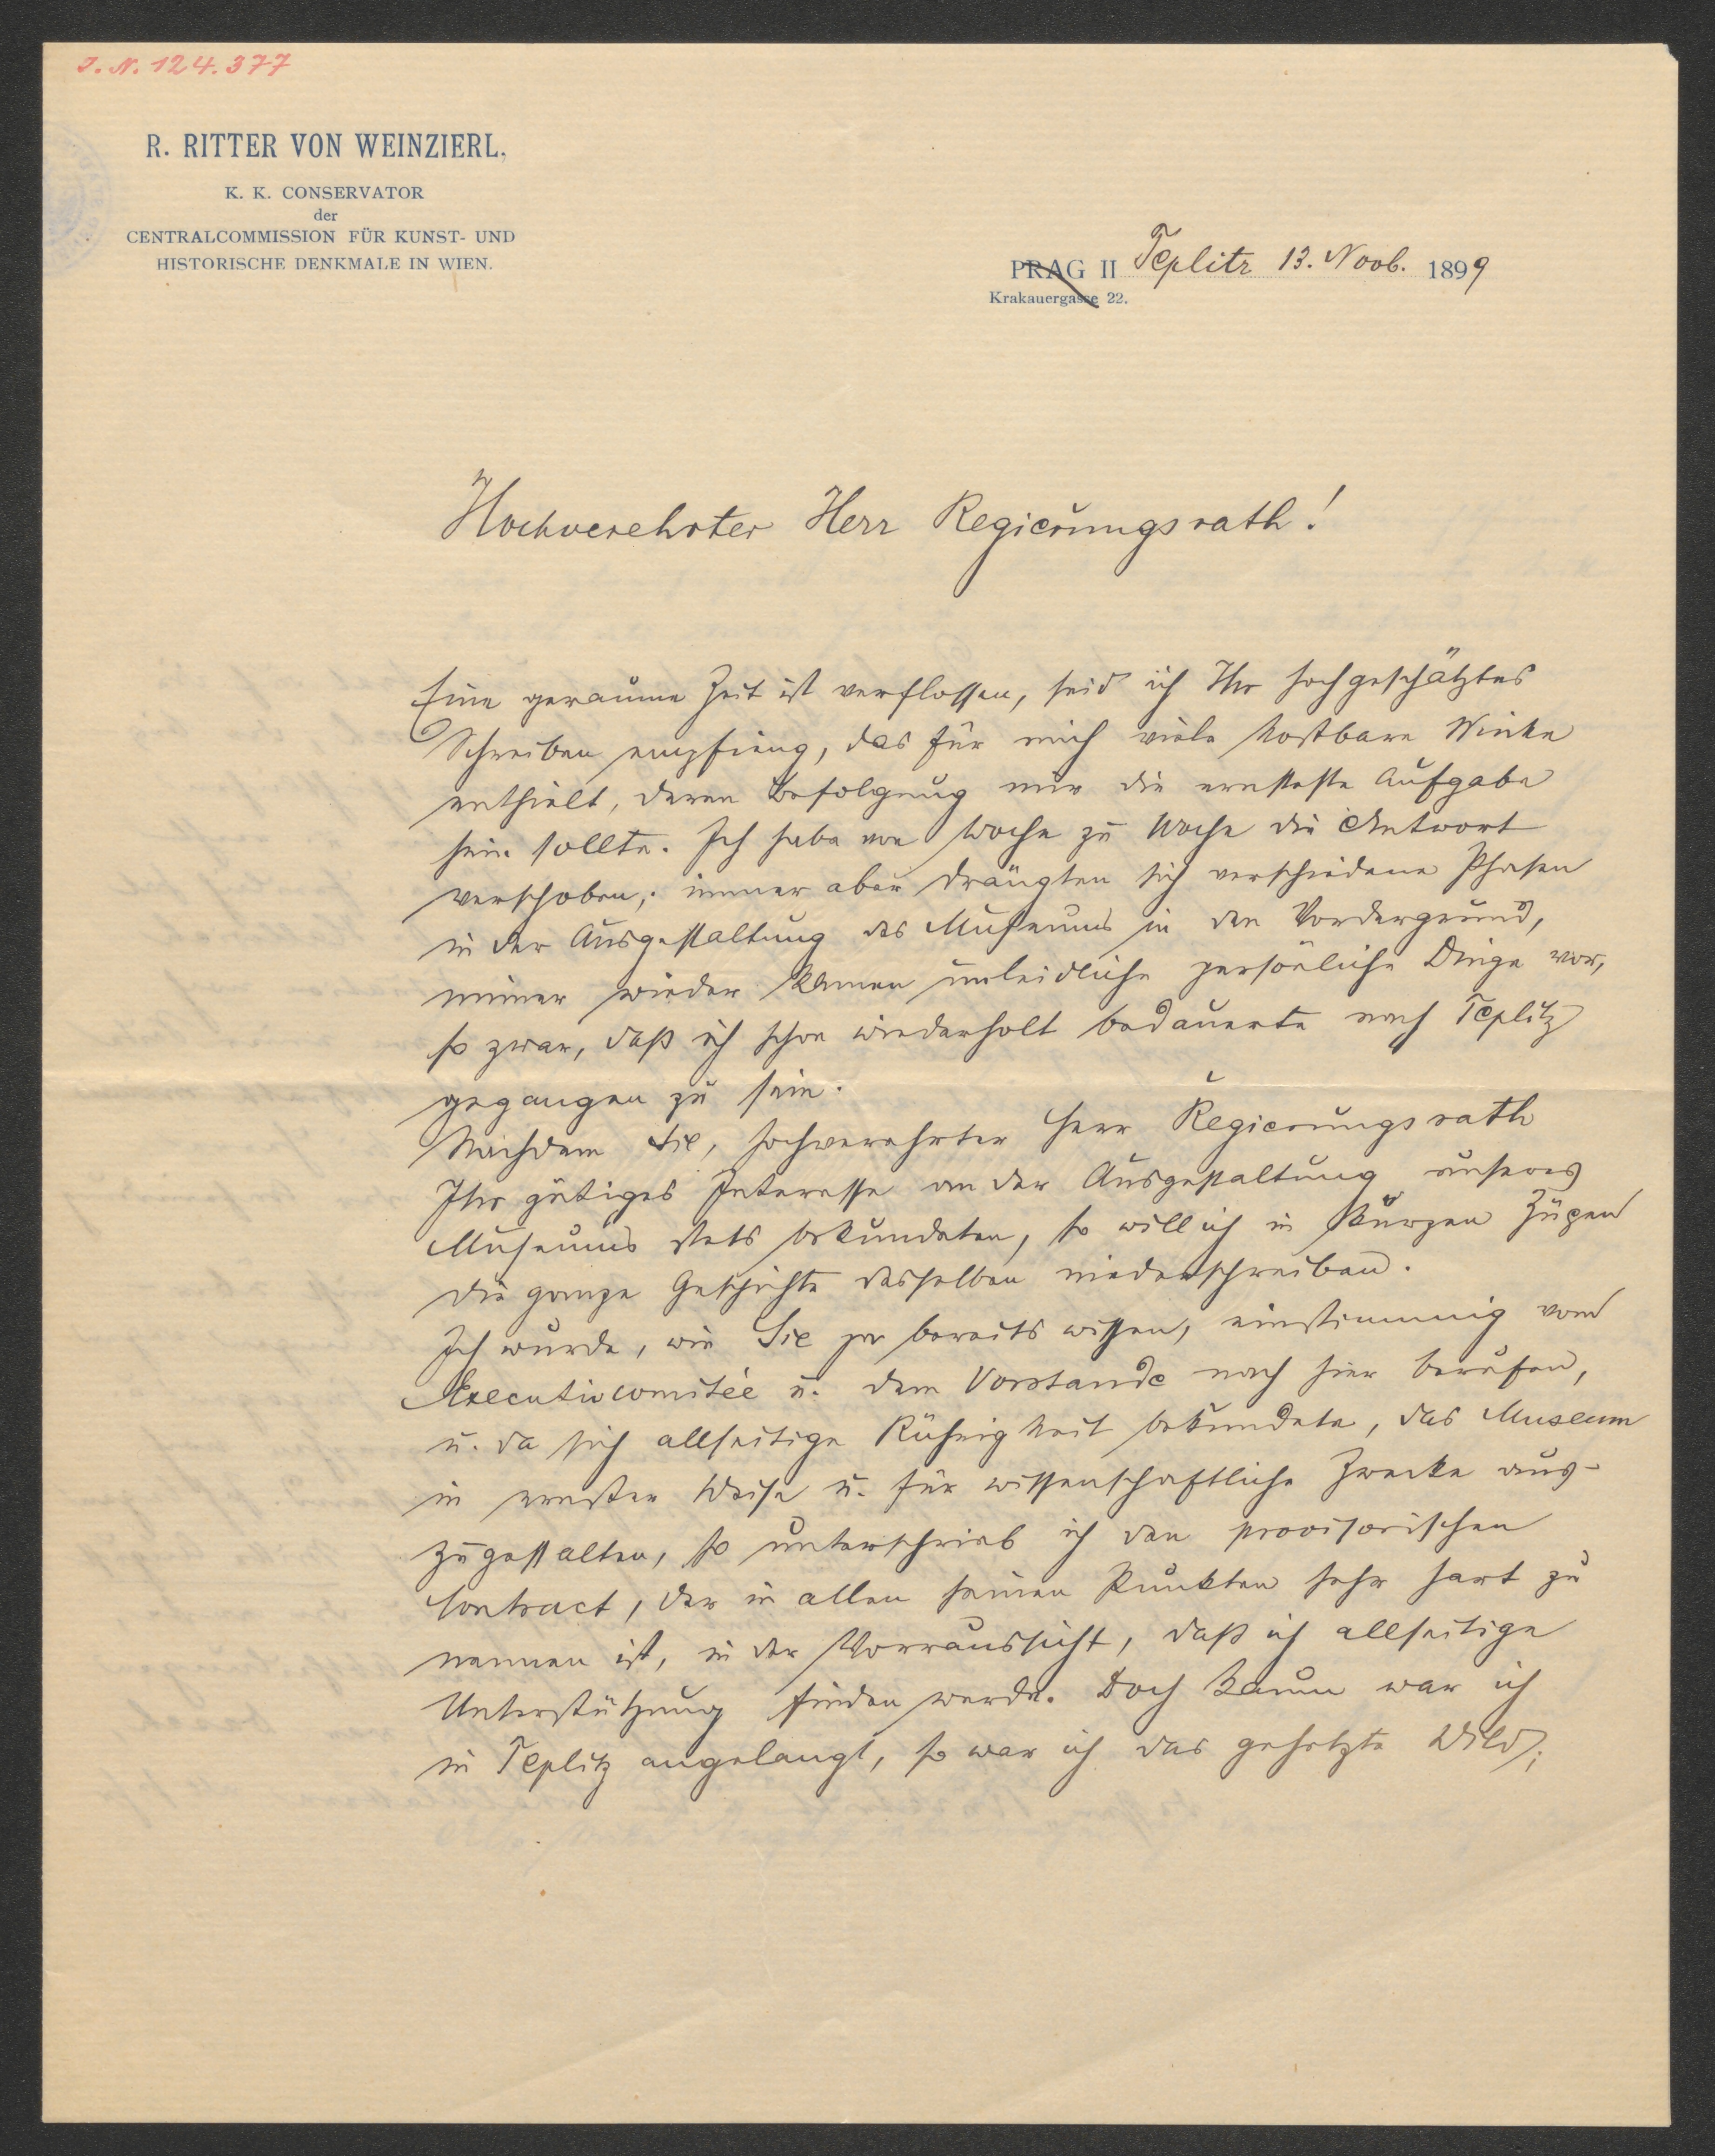 J. N. 124.377
R. RITTER VON WEINZIERL.
K. K. CONSERVATOR
der
CENTRALCOMMISSION FÜR KUNST- UND
HISTORISCHE DENKMALE IN WIEN.
PRAG II Teplitz 13. Novb. 1899
Krakauergasse 22.
Hochverehrter Herr Regierungsrath!
Eine geraume Zeit ist verflossen, seid ich Ihr hochgeschätztes
Schreiben empfieng, das für mich viele kostbare Winke
enthielt, deren Befolgung mir die ernsteste Aufgabe
sein sollte. Ich habe von Woche zu Woche die Antwort
verschoben; immer aber drängten sich verschiedene Phasen
in der Ausgestaltung des Museums in den Vordergrund,
immer wieder kamen unleidliche persönliche Dinge vor,
so zwar, daß ich schon wiederholt bedauerte nach Teplitz
gegangen zu sein.
Nachdem Sie, hochverehrter Herr Regierungsrath
Ihr gütiges Interesse an der Ausgestaltung unseres
Museums stets bekundeten, so will ich in kurzen Zügen
die ganze Geschichte desselben niederschreiben.
Ich wurde, wie Sie ja bereits wissen, einstimmig vom
Executivcomitée u. dem Vorstande nach hier berufen,
u. da sich allseitige Rührigkeit bekundete, das Museum
in ernster Weise u. für wissenschaftliche Zwecke aus-
zugestalten, so unterschrieb ich den provisorischen
Contract, der in allen seinen Punkten sehr hart zu
nennen ist, in der Vorraussicht, daß ich allseitige
Unterstützung finden werde. Doch kaum war ich
in Teplitz angelangt, so war ich das gehetzte Wild;